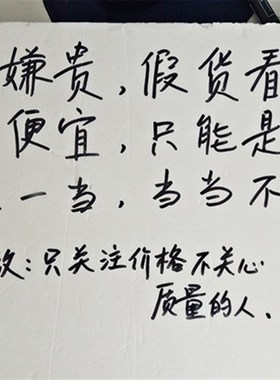 嫌贵，假货看
便宜，只能是
一当，当当不
:只关注价格不关心
质量的人.